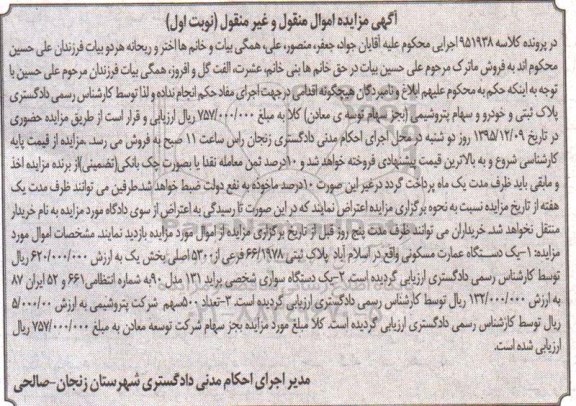 آگهی مزایده اموال منقول و غیر منقول (نوبت اول)
در پرونده کلاسه ۹۵۱۹۳۸ اجرایی محکوم علیه آقایان جواد، جعفر، منصور، علی، همگی بیات و خانم ها اختر و ریحانه هردو بیات فرزندان علی حسین
محکوم اند به فروش ماترک مرحوم علی حسین بیات در حق خانم ها بنی خانم، عشرت، الفت گل و افروز، همگی بیات فرزندان مرحوم علی حسین با
توجه به اینکه حکم به محکوم علیهم ابلاغ و نامبردگان هیچگونه اقدامی در جهت اجرای مفاد حکم انجام نداده و لذا توسط کارشناس رسمی دادگستری
پلاک ثبتی و خودرو و سهام پتروشیمی (بجز سهام توسعه ی معادن) کلا به مبلغ ۷۵۷/۰۰۰/۰۰۰ ریال ارزیابی و قرار است از طریق مزایده حضوری
در تاریخ ۱۳۹۵/۱۲/۰۹ روز دو شنبه در محل اجرای احکام مدنی دادگستری زنجان راس ساعت ۱۱ صبح به فروش می رسد .مزایده از قیمت پایه
کارشناسی شروع و به بالاترین قیمت پیشنهادی فروخته خواهد شد و ۱۰درصد ثمن معامله نقدا یا بصورت چک بانکی(تضمینی)از برنده مزایده اخذ
و مابقی باید ظرف مدت یک ماه پرداخت گردد درغیر این صورت ۱۰درصد ماخوذه به نفع دولت ضبط خواهد شد.طرفین می توانند ظرف مدت یک
هفته از تاریخ مزایده نسبت به نحوه برگزاری مزایده اعتراض نمایند که در این صورت تا رسیدگی به اعتراض از سوی دادگاه مورد مزایده به نام خریدار
منتقل نخواهد شد. خریداران می توانند ظرف مدت پنج روز قبل از تاریخ برگزاری مزایده از اموال مورد مزایده بازدید نمایند. مشخصات اموال مورد
مزایده: ۱-یک دستگاه عمارت مسکونی واقع در اسلام آباد پلاک ثبتی ۶۶/۱۹۷۸ فرعی از ۵۳۰ اصلی بخش یک به ارزش ۶۲۰/۰۰۰/۰۰۰ ریال
توسط کارشناس رسمی دادگستری ارزیابی گردیده است. ۲-یک دستگاه سواری شخصی پراید ۱۳۱ مدل ۹۰ به شماره انتظامی ۶۶۱ و ۵۲ ایران ۸۷
به ارزش ۱۳۲/۰۰۰/۰۰۰ ریال توسط کارشناس رسمی دادگستری ارزیابی گردیده است. ۳-تعداد ۵۰۰سهم شرکت پتروشیمی به ارزش ۵/۰۰۰/۰۰
ریال توسط کارشناس رسمی دادگستری ارزیابی گردیده است. کلا مبلغ مورد مزایده بجز سهام شرکت توسعه معادن به مبلغ ۷۵۷/۰۰۰/۰۰۰ ریال
ارزیابی شده است.
مدیر اجرای احکام مدنی دادگستری شهرستان زنجان-صالحی